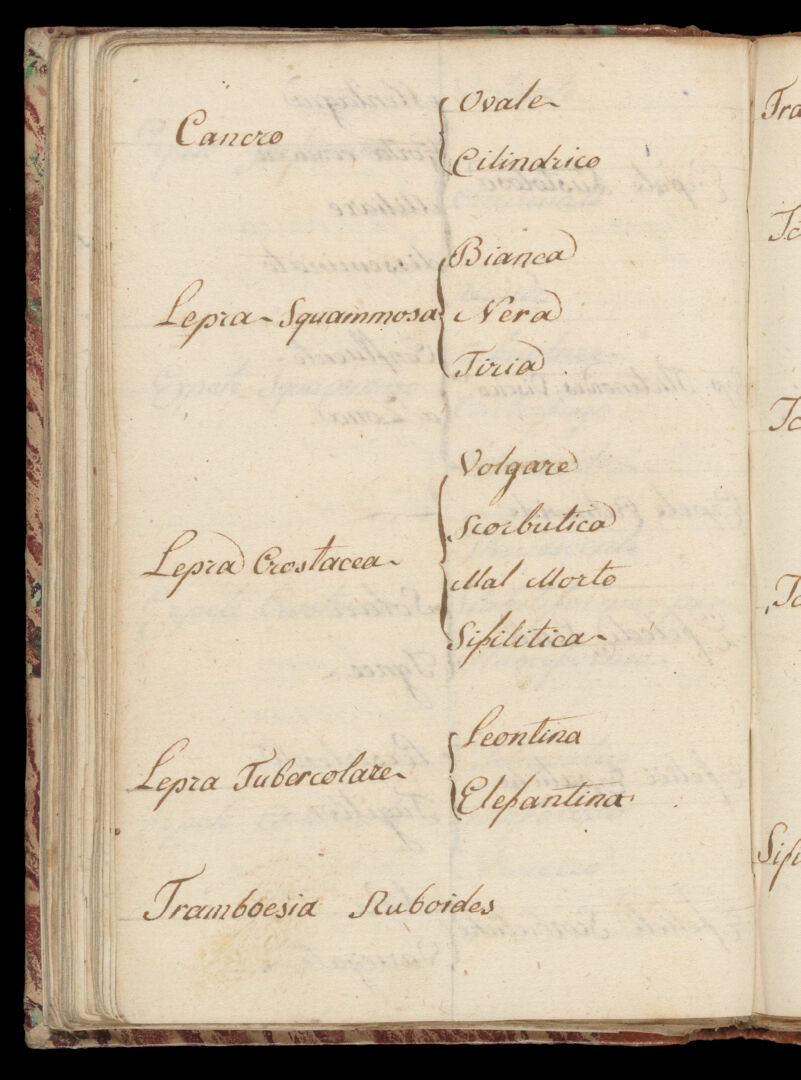 Cancro
Ovale
Cilindrico
Lepra Squammosa
Bianca
Nera
Tiria
Lepra Crostacea
Volgare
Scorbutica
Mal Morto
Sifilitica
Lepra Tubercolare
Leontina
Elefantina
Framboesia Ruboides